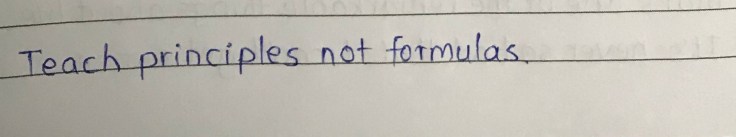 Teach principles not formulas.